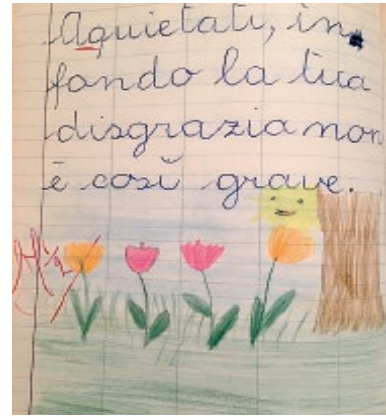 Aquietati, in
fondo la tua
disgrazia non
è così grave.